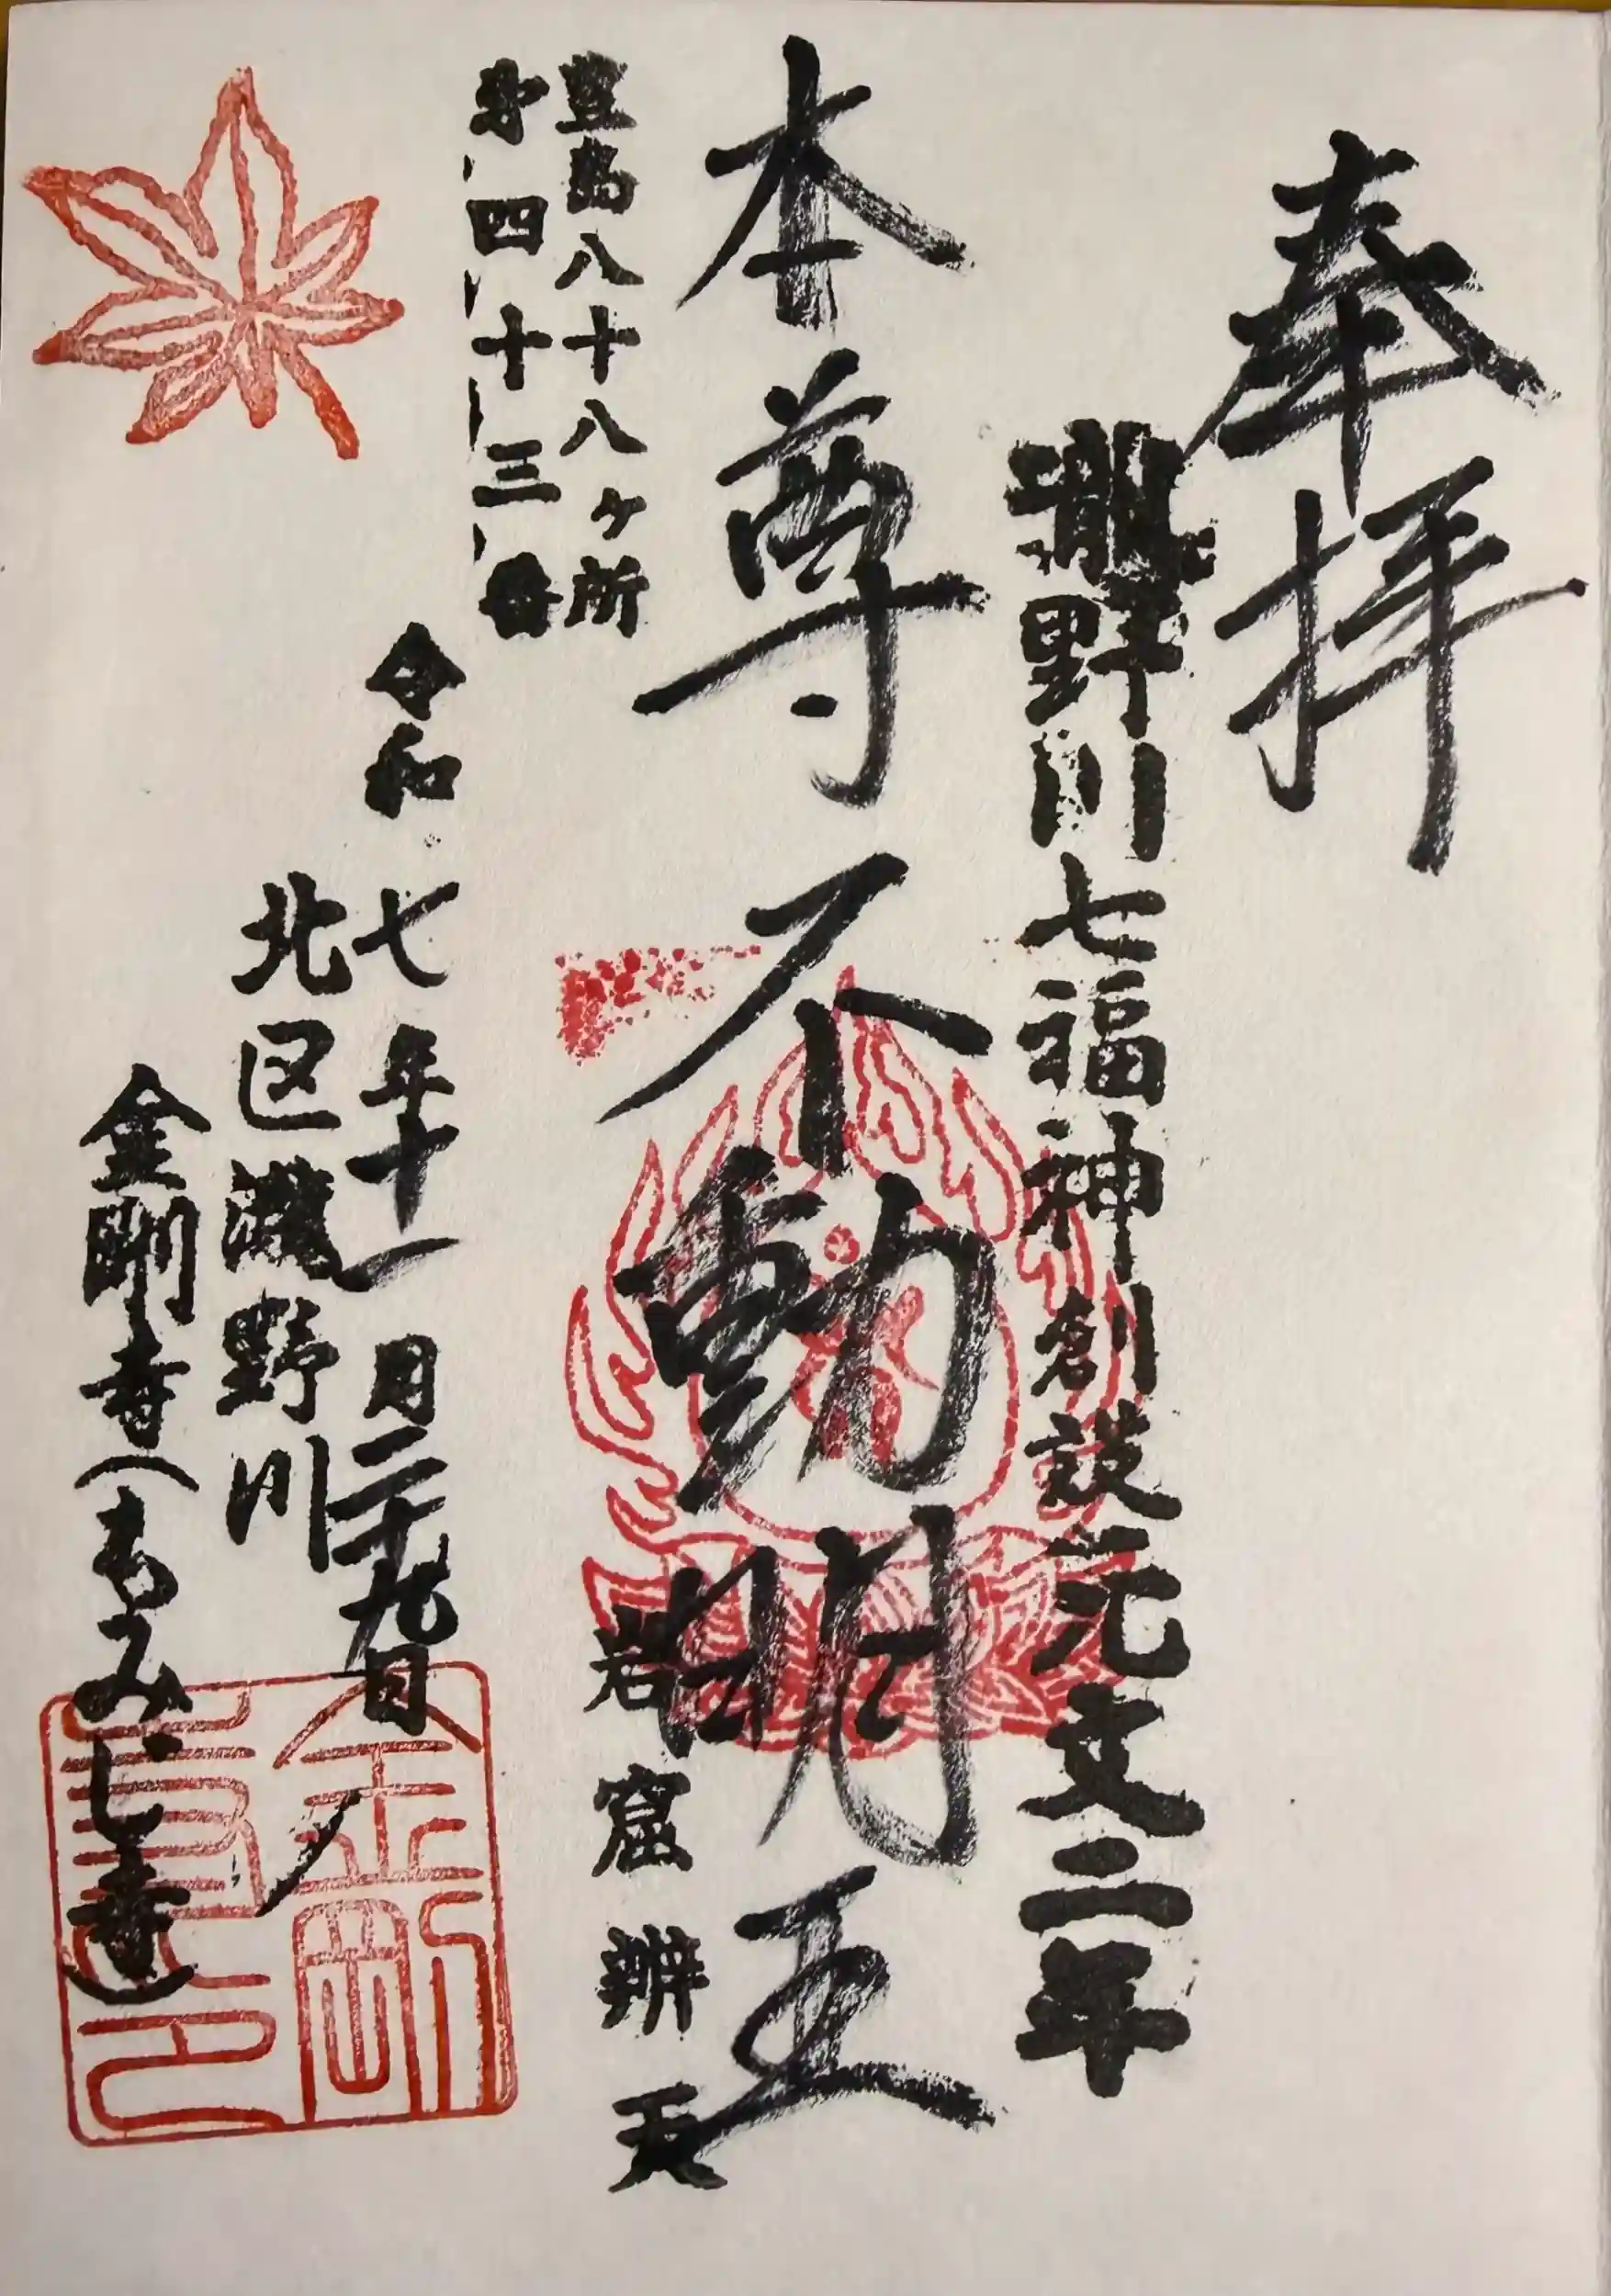 奉拝
瀧野川七福神創設元文二年
本尊不動明王
岩窟辨天
豊島八十八ヶ所
第四十三番
令和七年十一月二十九日
北区瀧野川
金剛寺(もみじ寺)